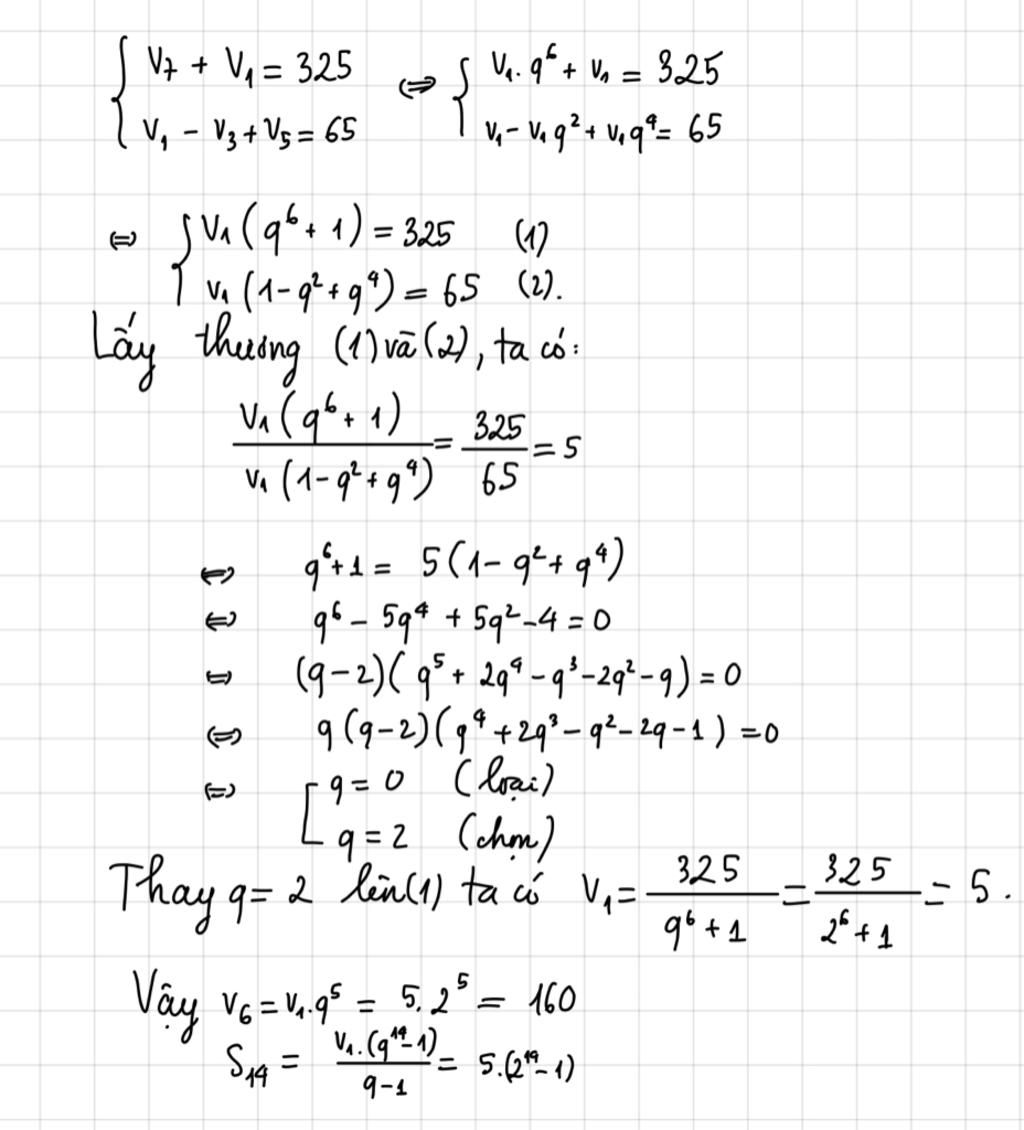 { V₇ + V₁ = 325 ⇔ { V₁. q⁶ + V₁ = 325
{ V₁ − V₃ + V₅ = 65 { V₁ − V₁q² + V₁q⁴ = 65
⇔ { V₁(q⁶ + 1) = 325 (1)
{ V₁(1 − q² + q⁴) = 65 (2).
Lấy thương (1) và (2), ta có:
V₁(q⁶ + 1) / V₁(1 − q² + q⁴) = 325/65 = 5
⇔ q⁶ + 1 = 5(1 − q² + q⁴)
⇔ q⁶ − 5q⁴ + 5q² − 4 = 0
⇔ (q − 2)(q⁵ + 2q⁴ − q³ − 2q² − q) = 0
⇔ q(q − 2)(q⁴ + 2q³ − q² − 2q − 1) = 0
⇔ [ q = 0 (loại)
[ q = 2 (chọn)
Thay q = 2 lên (1) ta có V₁ = 325/(q⁶ + 1) = 325/(2⁶ + 1) = 5.
Vậy V₆ = V₁.q⁵ = 5.2⁵ = 160
S₁₄ = V₁.(q¹⁴ − 1)/(q − 1) = 5.(2¹⁴ − 1)